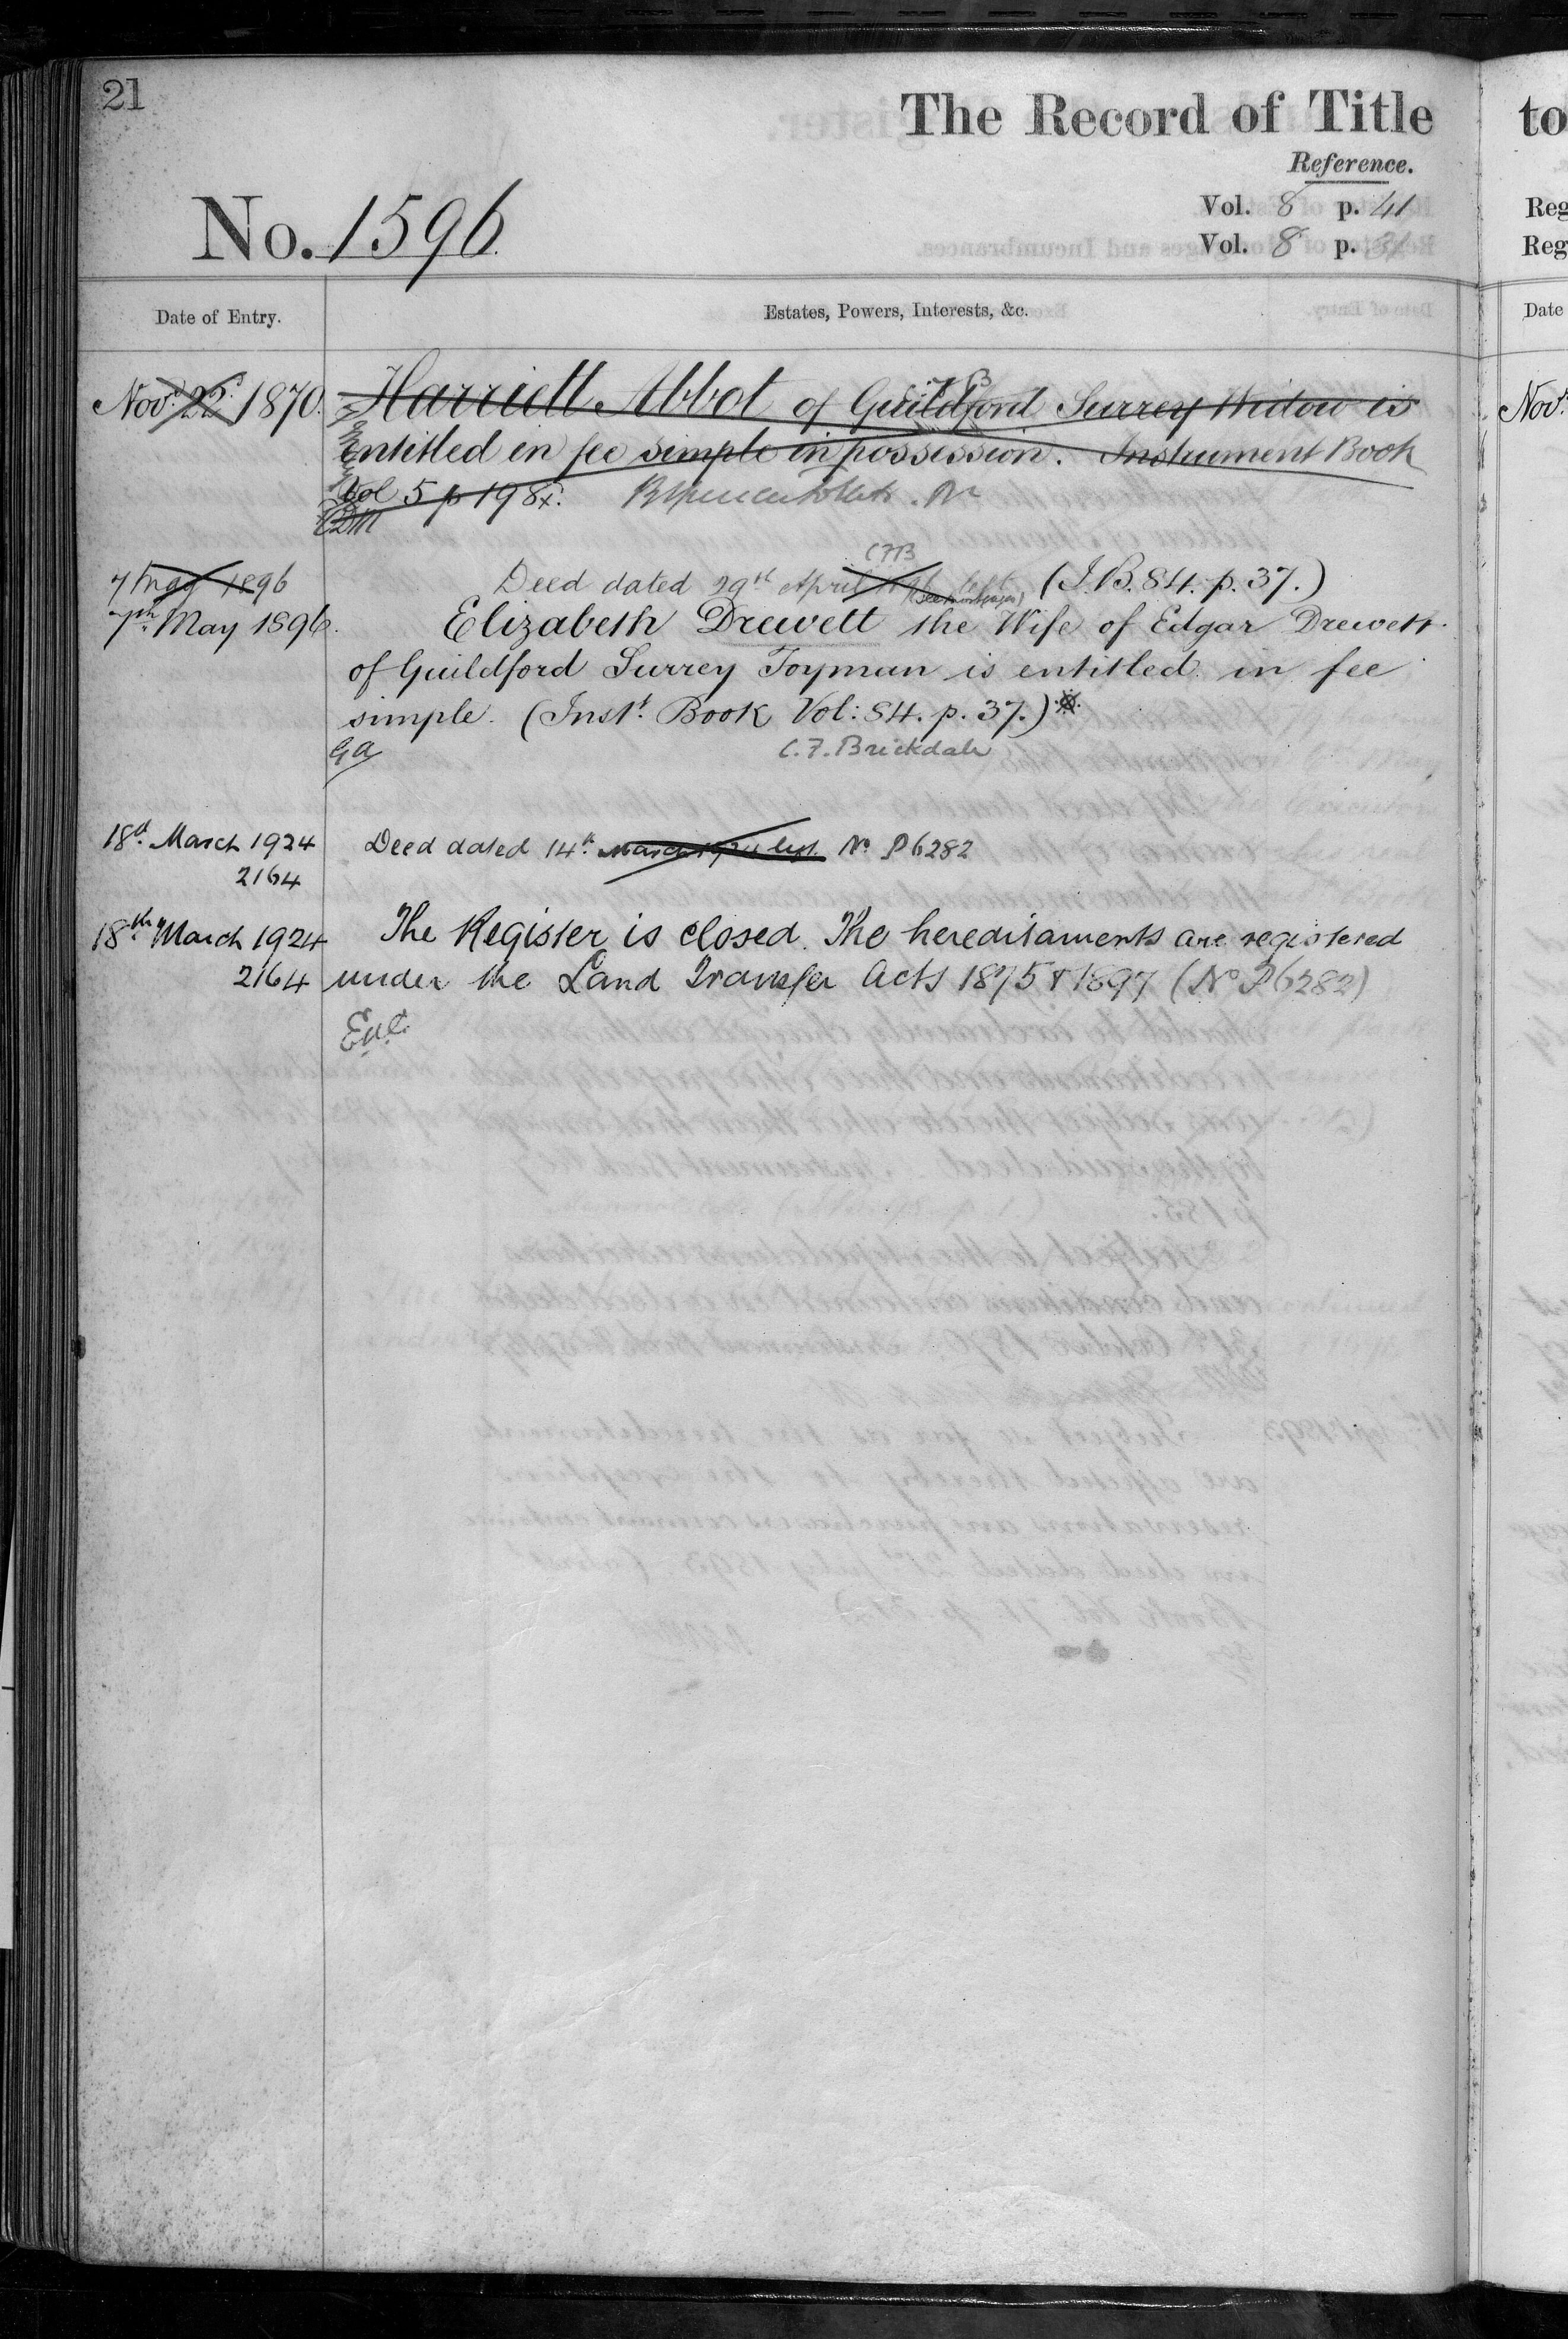 21
The Record of Title
Reference.
No. 1596
Vol. 8 p. 41
Vol. 8 p. 31
Date of Entry.
Estates, Powers, Interests, &c.
Nov. 22d. 1870.
Harriett Abbot of Guildford Surrey Widow is
Entitled in fee simple in possession. Instrument Book
Vol 5 p 198
CFB
7 May 1896
Deed dated 29th April 1896 left (I.B. 84. p. 37.)
7th. May 1896.
Elizabeth Drewett the Wife of Edgar Drewett
of Guildford Surrey Toyman is entitled in fee
simple. (Inst. Book Vol: 84. p. 37.)
GA
C. F. Brickdale
18th. March 1924
Deed dated 14th. March 1924 left. No P6282
2164
18th. March 1924
The Register is closed. The hereditaments are registered
2164
under the Land Transfer Acts 1875 & 1897 (No P6282)
to
Reg
Reg
Date
Nov.